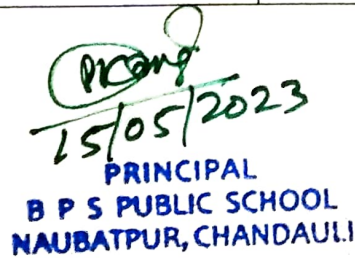 15/05/2023
PRINCIPAL
B P S PUBLIC SCHOOL
NAUBATPUR, CHANDAULI